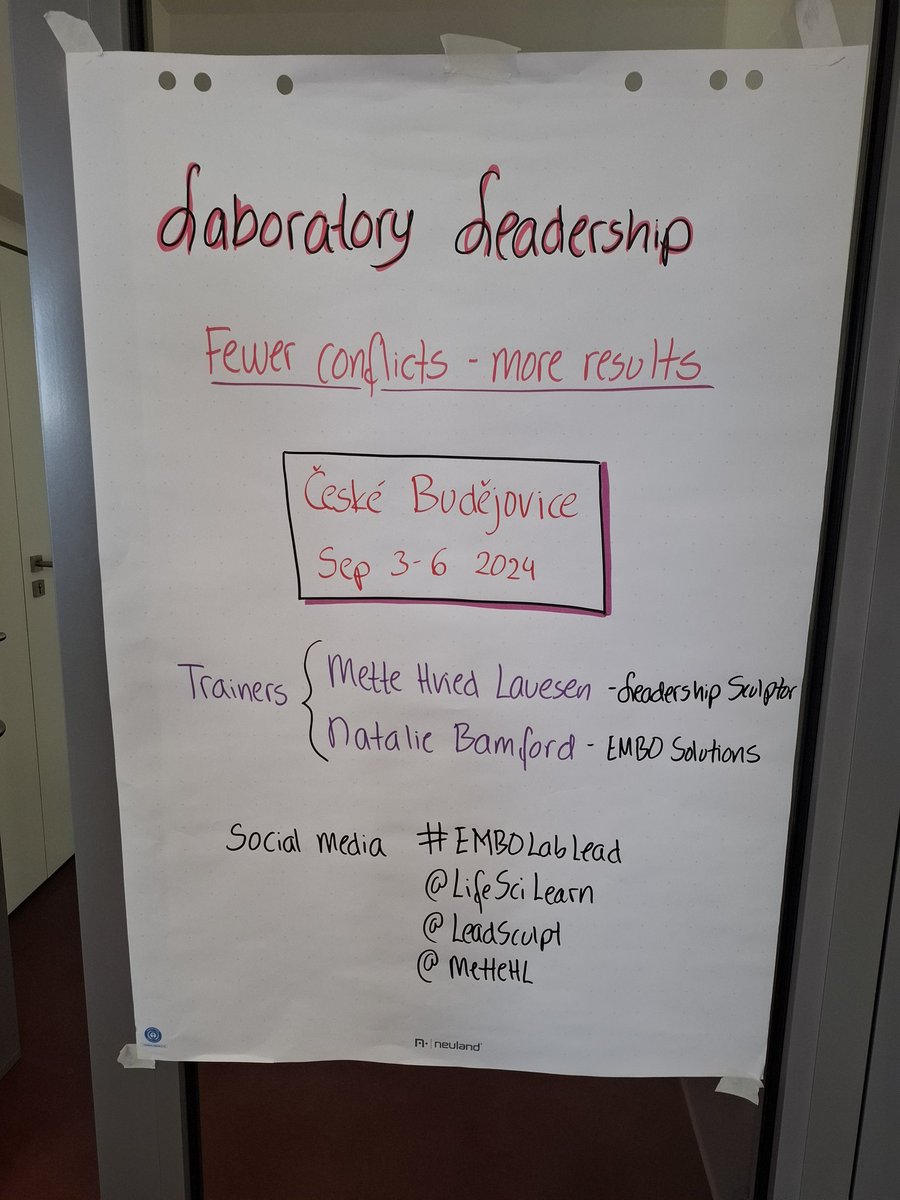 Laboratory Leadership
Fewer conflicts - more results
České Budějovice
Sep 3-6 2024
Trainers { Mette Hvied Lauesen - Leadership Sculptor
Natalie Bamford - EMBO Solutions
Social media #EMBOLabLead
@LifeSciLearn
@LeadSculpt
@MetteHL
neuland